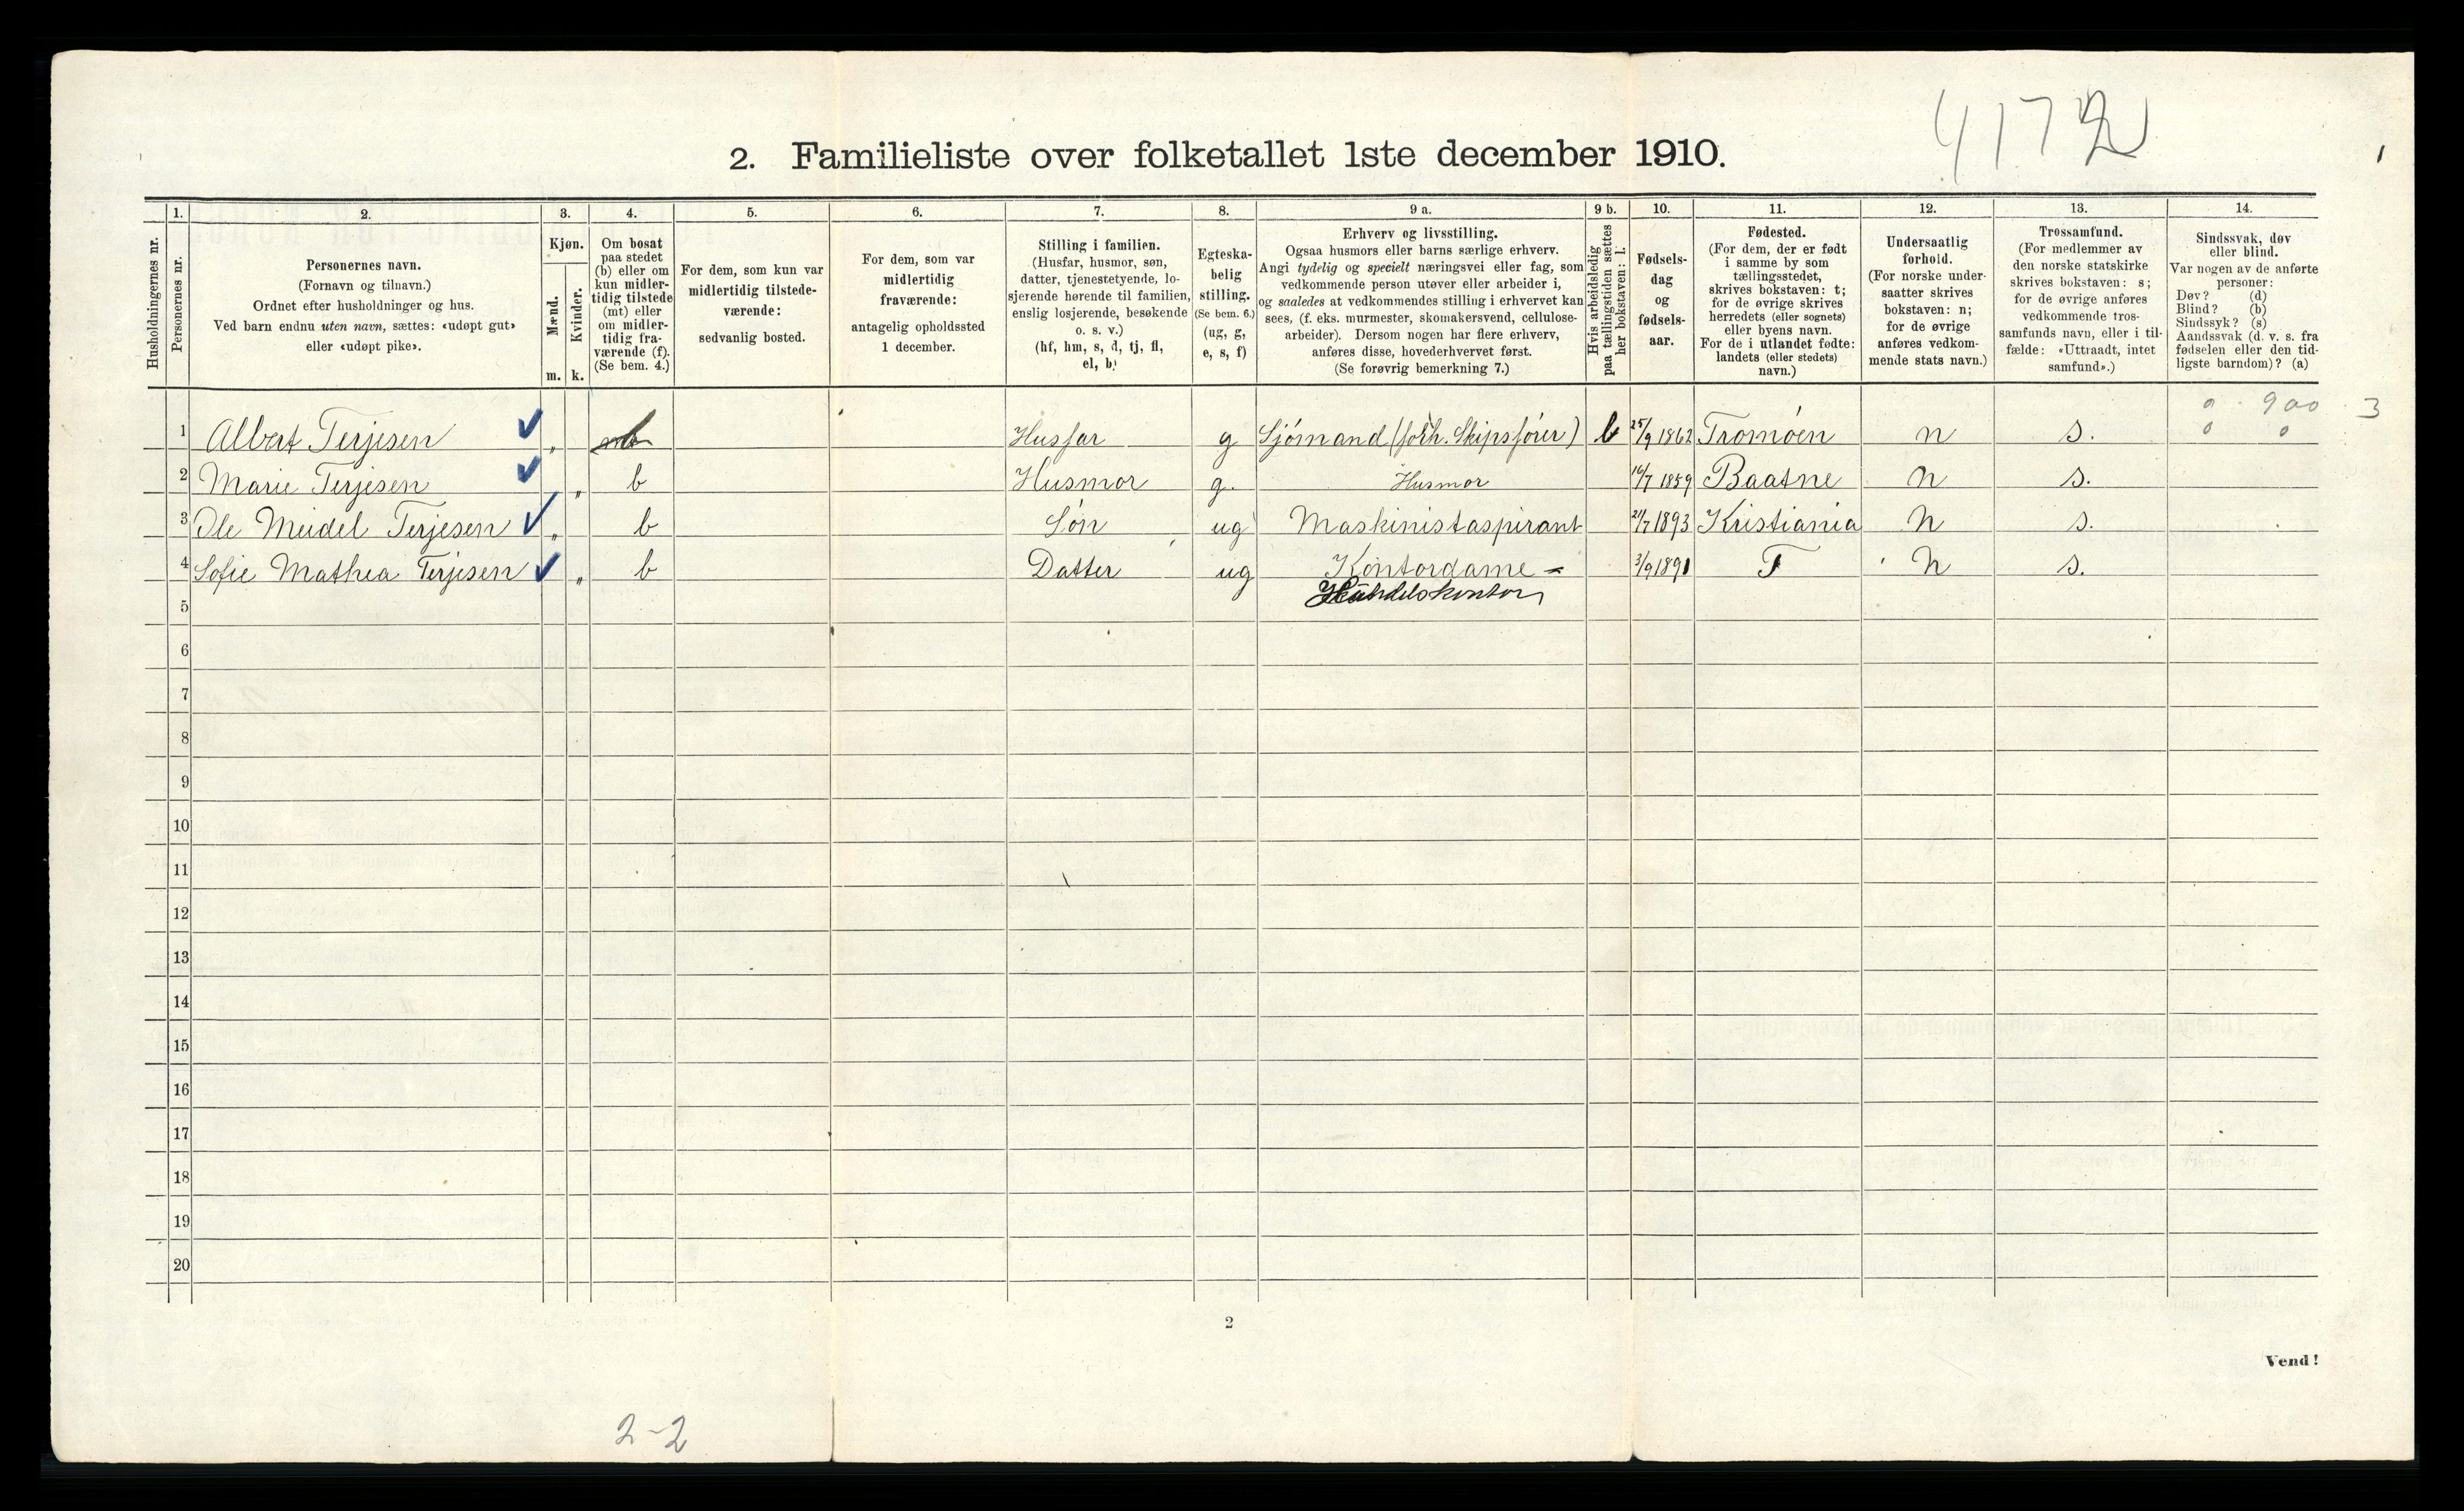 4172
2. Familieliste over folketallet 1ste december 1910.
Husholdningernes nr.
1. Personernes nr.
2. Personernes navn. (Fornavn og tilnavn.) Ordnet efter husholdninger og hus. Ved barn endnu uten navn, sættes: «udøpt gut» eller «udøpt pike».
3. Kjøn. Mænd. m. Kvinder. k.
4. Om bosat paa stedet (b) eller om kun midlertidig tilstede (mt) eller om midlertidig fraværende (f). (Se bem. 4.)
5. For dem, som kun var midlertidig tilstedeværende: sedvanlig bosted.
6. For dem, som var midlertidig fraværende: antagelig opholdssted 1 december.
7. Stilling i familien. (Husfar, husmor, søn, datter, tjenestetyende, losjerende hørende til familien, enslig losjerende, besøkende o. s. v.) (hf, hm, s, d, tj, fl, el, b)
8. Egteskabelig stilling. (Se bem. 6.) (ug, g, e, s, f)
9 a. Erhverv og livsstilling. Ogsaa husmors eller barns særlige erhverv. Angi tydelig og specielt næringsvei eller fag, som vedkommende person utøver eller arbeider i, og saaledes at vedkommendes stilling i erhvervet kan sees, (f. eks. murmester, skomakersvend, cellulosearbeider). Dersom nogen har flere erhverv, anføres disse, hovederhvervet først. (Se forøvrig bemerkning 7.)
9 b. Hvis arbeidsledig paa tællingstiden sættes her bokstaven: l.
10. Fødselsdag og fødselsaar.
11. Fødested. (For dem, der er født i samme by som tællingsstedet, skrives bokstaven: t; for de øvrige skrives herredets (eller sognets) eller byens navn. For de i utlandet fødte: landets (eller stedets) navn.)
12. Undersaatlig forhold. (For norske undersaatter skrives bokstaven: n; for de øvrige anføres vedkommende stats navn.)
13. Trossamfund. (For medlemmer av den norske statskirke skrives bokstaven: s; for de øvrige anføres vedkommende trossamfunds navn, eller i tilfælde: «Uttraadt, intet samfund».)
14. Sindssvak, døv eller blind. Var nogen av de anførte personer: Døv? (d) Blind? (b) Sindssyk? (s) Aandssvak (d. v. s. fra fødselen eller den tidligste barndom)? (a)
0 . 900 . 3
0 0
1 Albert Terjesen „ b Husfar g Sjømand (forh. Skipsfører) 25/9 1862 Tromøen n s.
2 Marie Terjesen „ b Husmor g. Husmor 16/7 1859 Baatne n s.
3 Ole Meidel Terjesen „ b Søn ug Maskinistaspirant 21/7 1893 Kristiania n s.
4 Sofie Mathea Terjesen „ b Datter ug Kontordame - 3/9 1891 T n s.
Handelskontor
5
6
7
8
9
10
11
12
13
14
15
16
17
18
19
20
2
Vend!
2-2